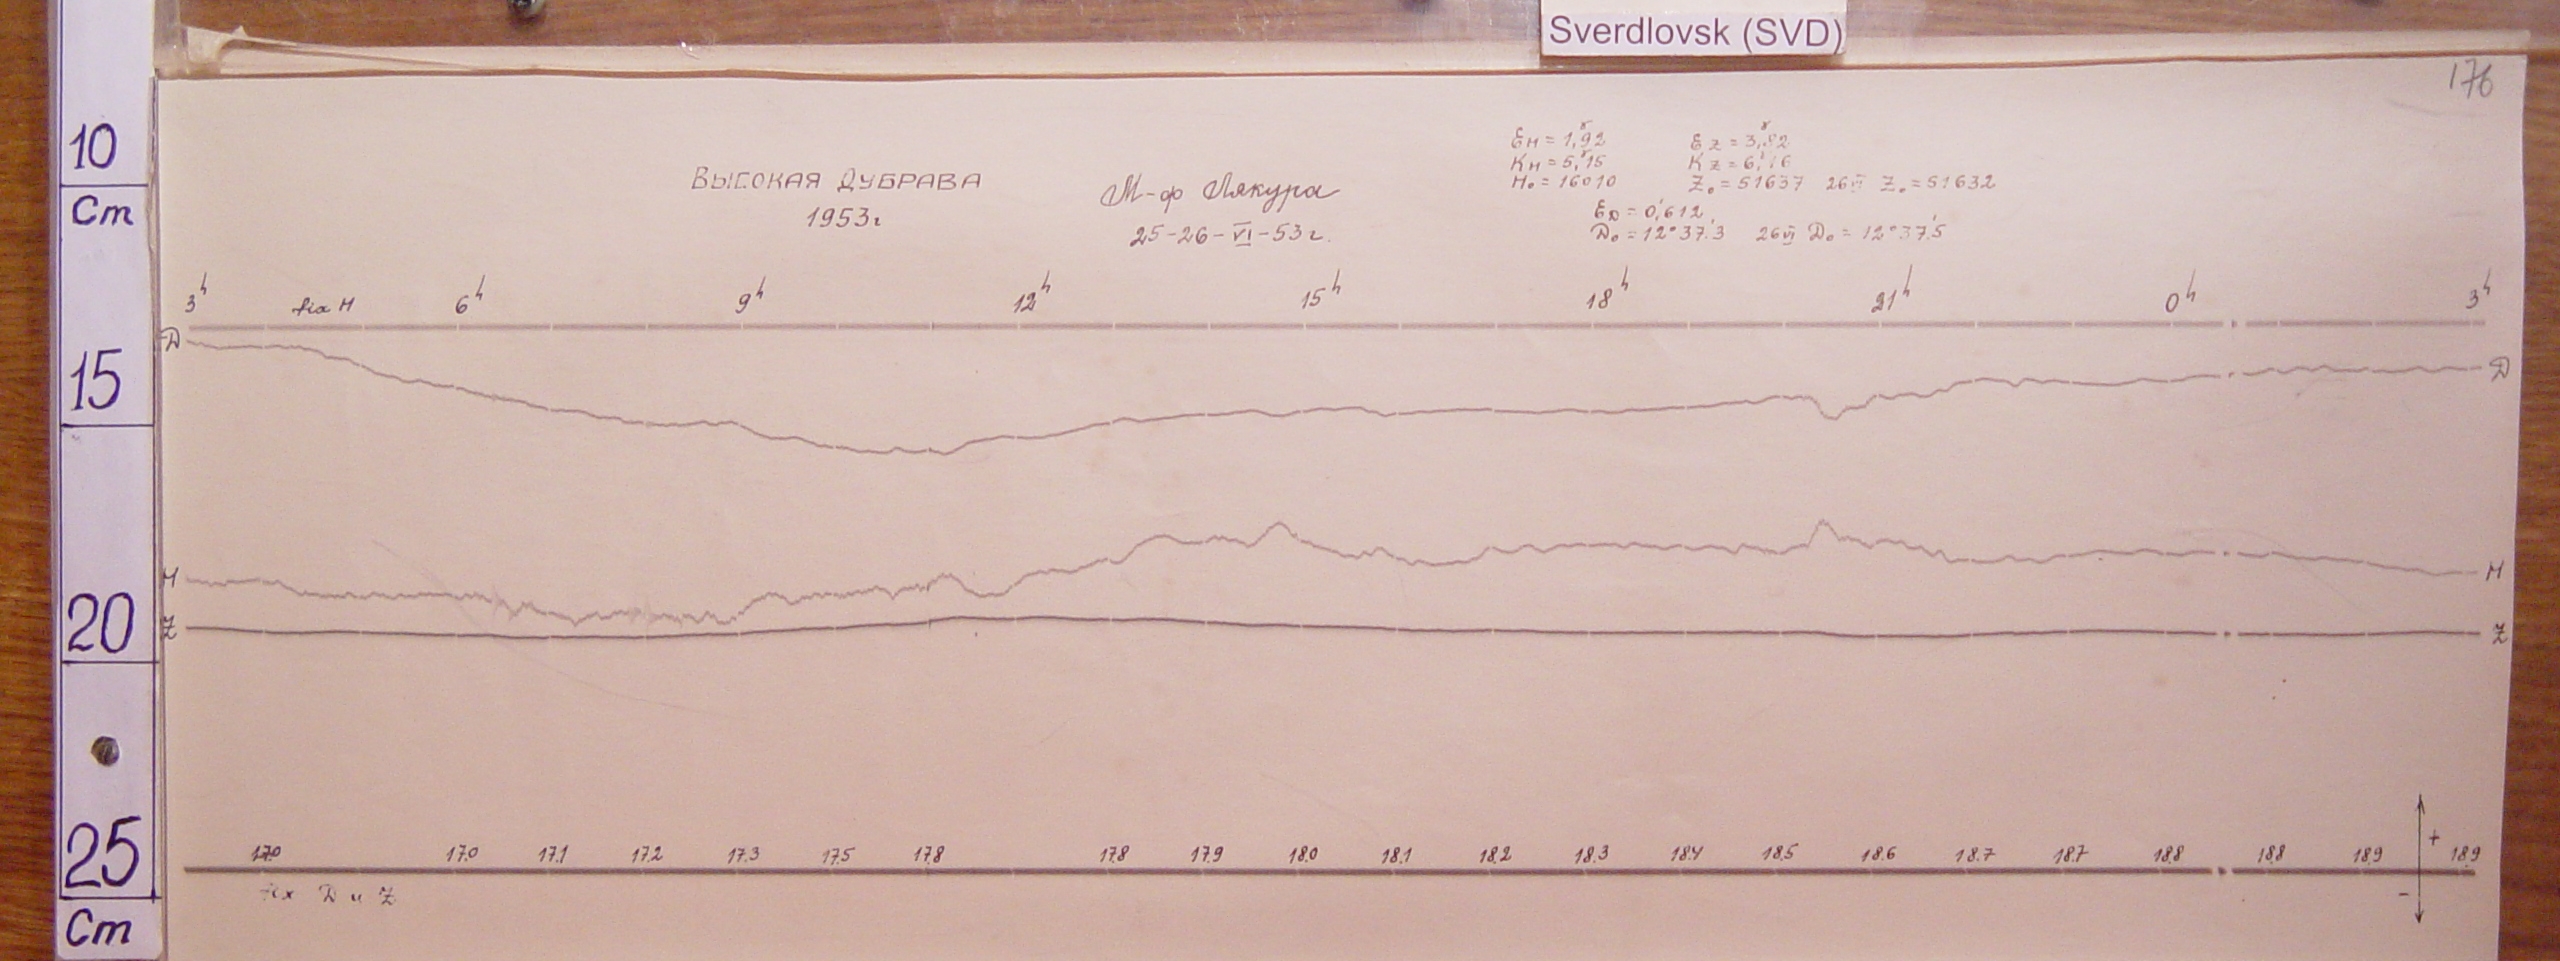 Sverdlovsk (SVD)
176
10
Cm
15
20
25
Cm
ВЫСОКАЯ ДУБРАВА
1953г
М-ф Лякура
25-26-VI-53г.
εH = 1,92γ
KH = 5,15γ
H₀ = 16010
εZ = 3,82γ
KZ = 6,16γ
Z₀ = 51637 26VI Z₀ = 51632
εD = 0,'612
D₀ = 12°37.'3 26VI D₀ = 12°37.'5
3h fix H 6h 9h 12h 15h 18h 21h 0h 3h
D D
H H
Z Z
17.0 17.0 17.1 17.2 17.3 17.5 17.8 17.8 17.9 18.0 18.1 18.2 18.3 18.4 18.5 18.6 18.7 18.7 18.8 18.8 18.9 18.9
fix D и Z
+
-